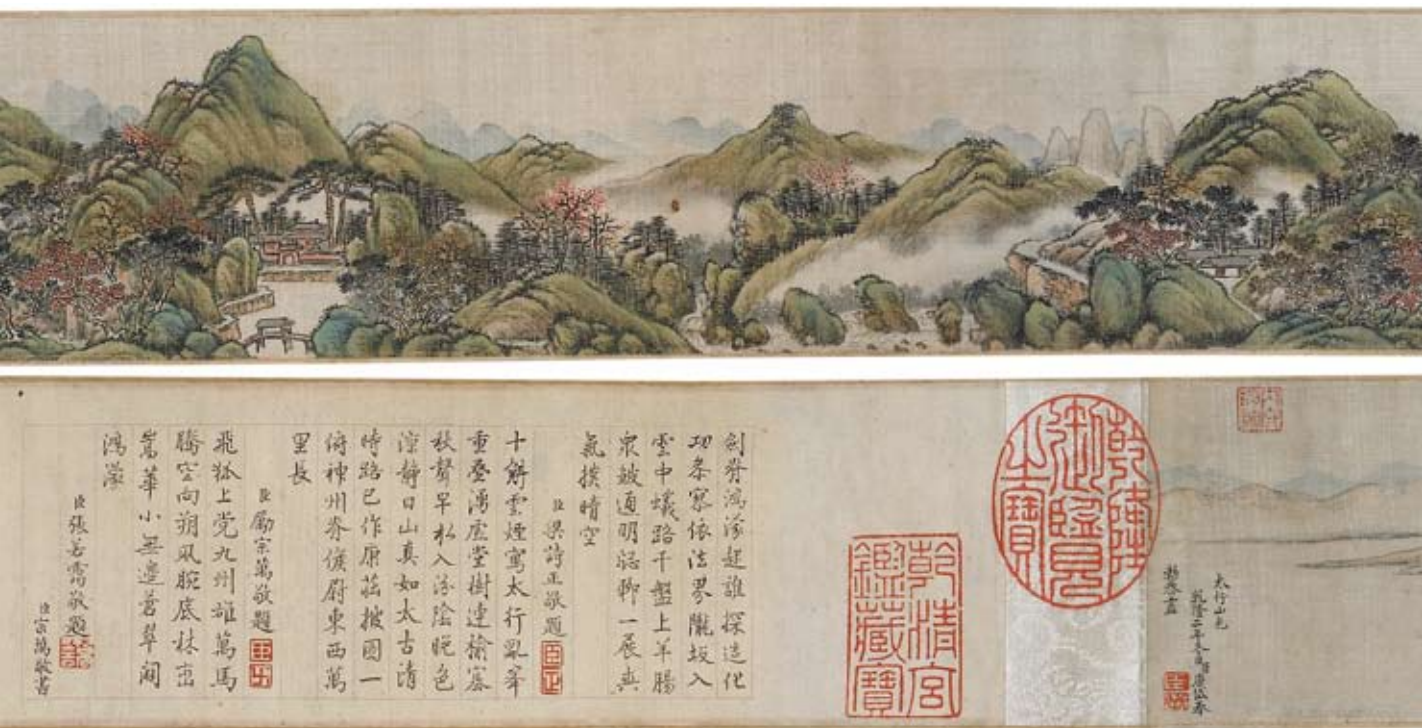 太行山色
乾隆二年
乾隆御覽之寶
乾清宮鑑藏寶
劍脊鴻濛起誰探造化
功依法界隴坂入
雲中蟻路千盤上羊腸
衆皴通明窓聊一展爽
氣撲晴空
臣梁詩正敬題
十斛雲煙寫太行亂峯
重疊湧虛堂樹連榆塞
秋聲早入汾陰晚色
涼靜日山真如太古清
時路已作康莊披圖一
俯神州脊候尉東西萬
里長
臣勵宗萬敬題
飛狐上党九州雄萬馬
騰空向朔風腕底林巒
嵩華小無邊蒼翠闢
鴻濛
臣張若靄敬題
臣宗萬敬書